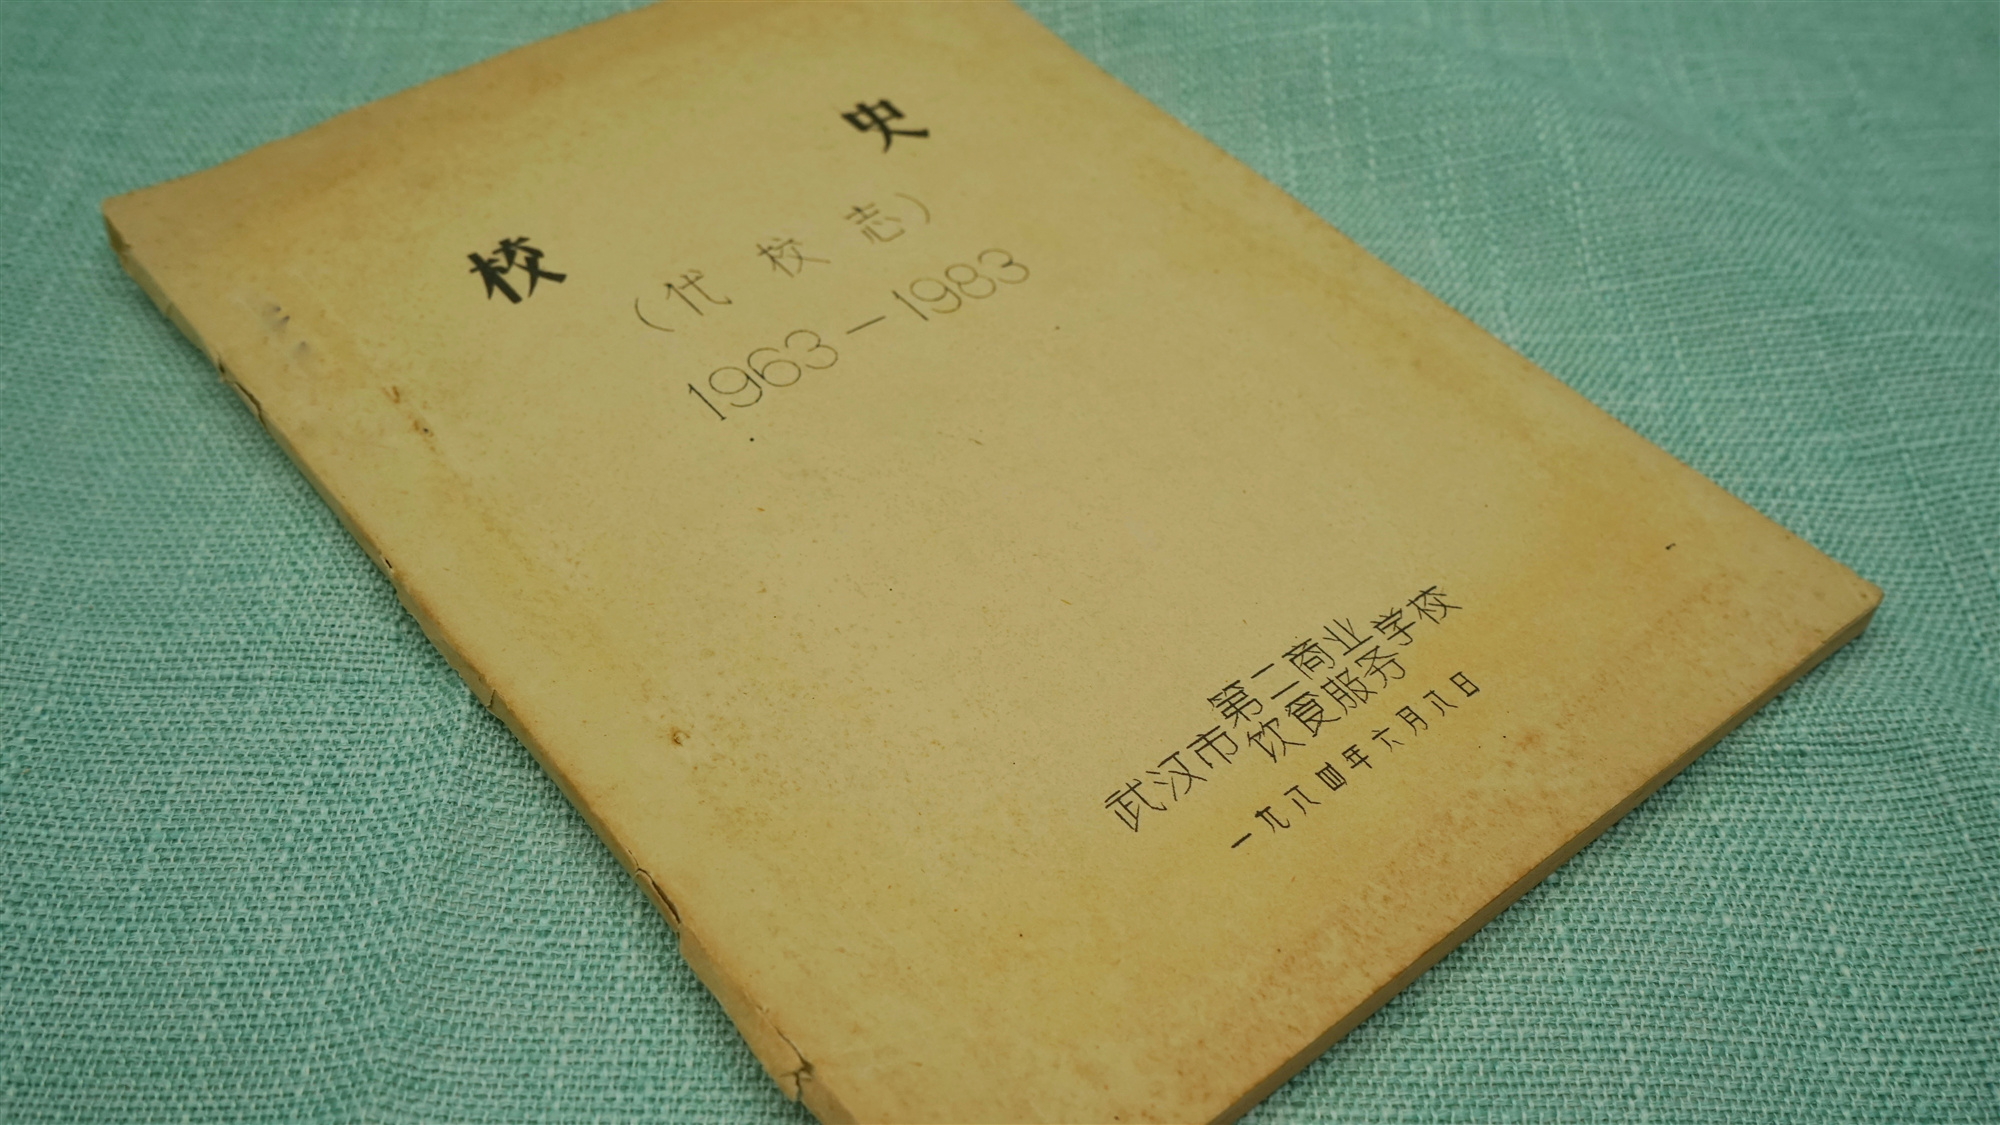 校 史
（代校志）
1963—1983
武汉市第二商业学校
饮食服务
一九八四年六月八日